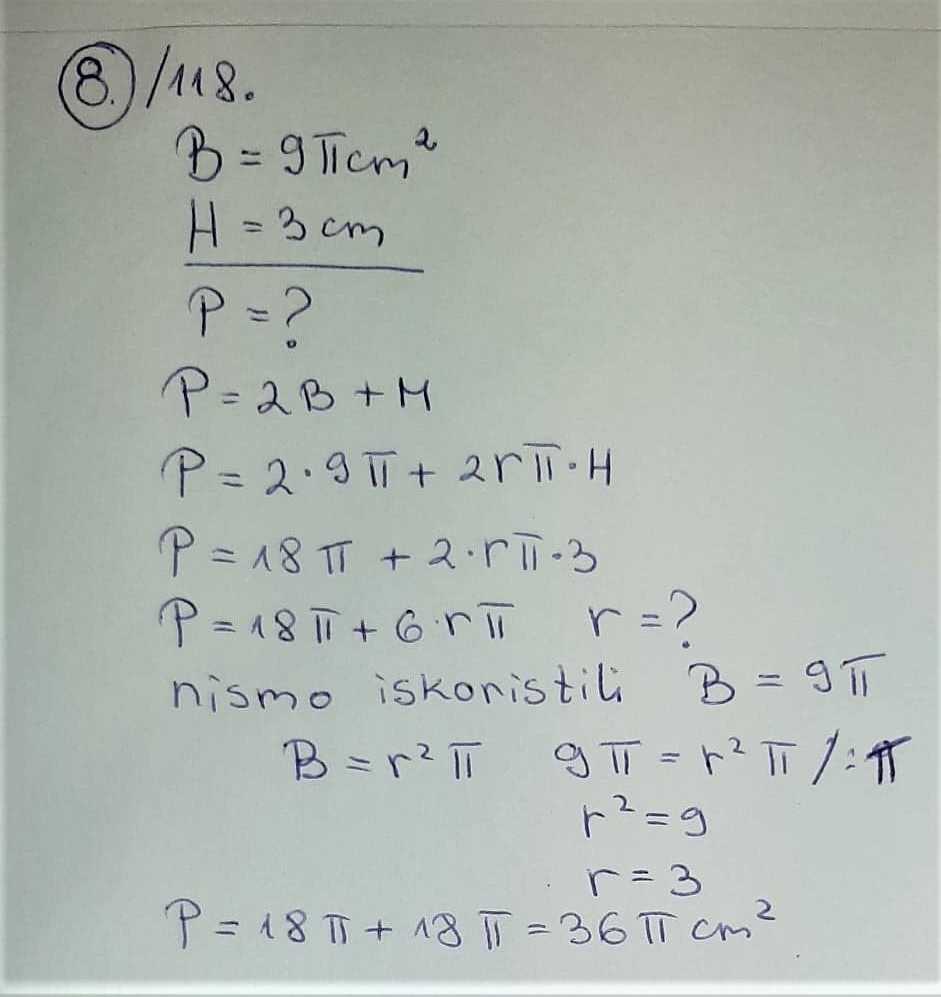 8. /118.
B = 9π cm²
H = 3 cm
P = ?
P = 2B + M
P = 2·9π + 2rπ·H
P = 18π + 2·rπ·3
P = 18π + 6·rπ r = ?
nismo iskoristili B = 9π
B = r²π 9π = r²π /:π
r² = 9
r = 3
P = 18π + 18π = 36π cm²